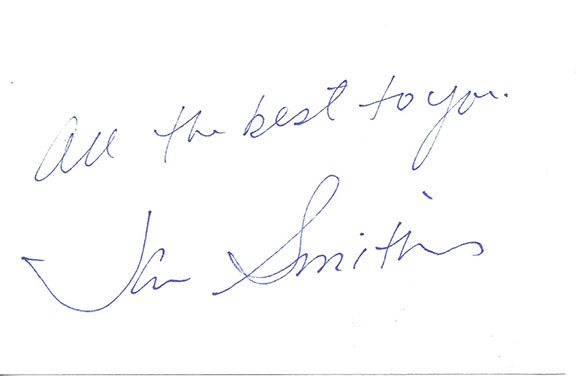 All the best to you.
Jan Smithers